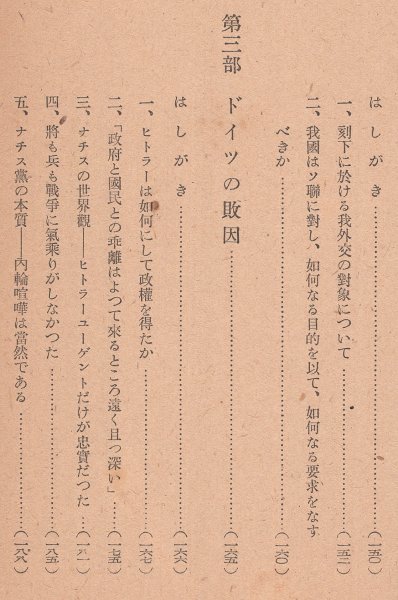 はしがき……………………(一五〇)
一、刻下に於ける我外交の對象について……………………(一五二)
二、我國はソ聯に對し、如何なる目的を以て、如何なる要求をなす
べきか……………………(一六〇)
第三部 ドイツの敗因……………………(一六五)
はしがき……………………(一六六)
一、ヒトラーは如何にして政權を得たか……………………(一六七)
二、「政府と國民との乖離はよつて來るところ遠く且つ深い」……(一七五)
三、ナチスの世界觀――ヒトラーユーゲントだけが忠實だつた……(一八一)
四、將も兵も戰爭に氣乘りがしなかつた……………………(一八五)
五、ナチス黨の本質――內輪喧嘩は當然である……………………(一八八)